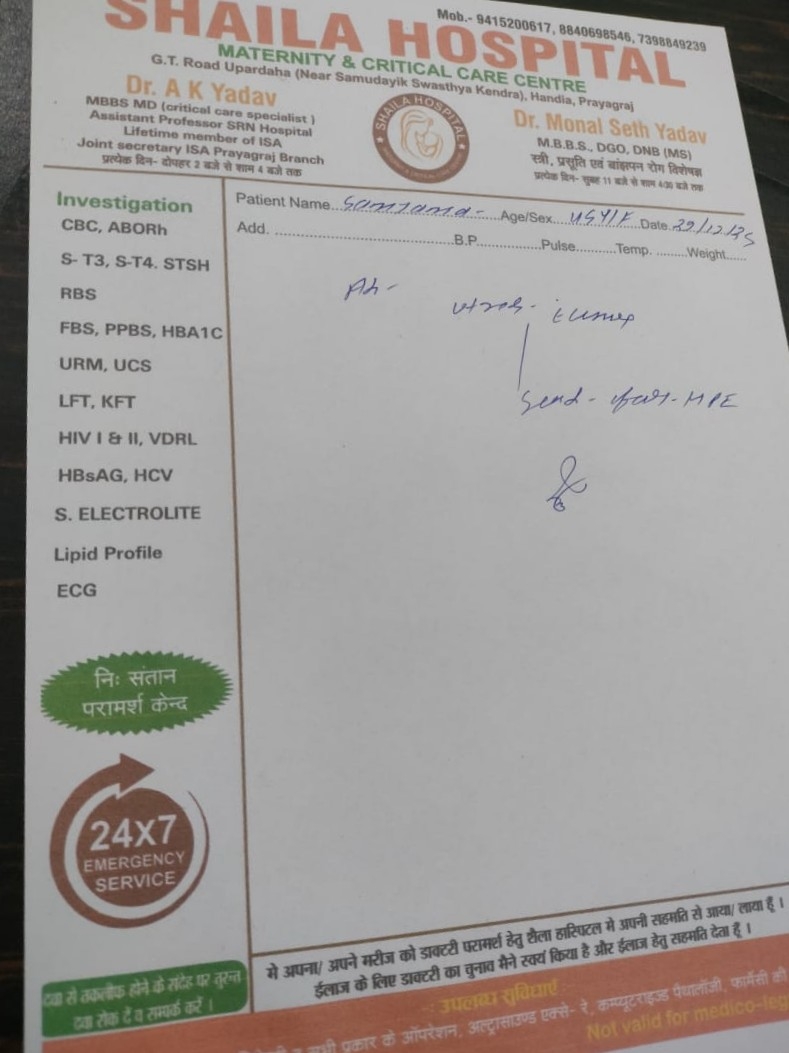 SHAILA HOSPITAL
Mob.- 9415200617, 8840698546, 7398849239
MATERNITY & CRITICAL CARE CENTRE
G.T. Road Upardaha (Near Samudayik Swasthya Kendra), Handia, Prayagraj
Dr. A K Yadav
MBBS MD (critical care specialist )
Assistant Professor SRN Hospital
Lifetime member of ISA
Joint secretary ISA Prayagraj Branch
प्रत्येक दिन- दोपहर 2 बजे से शाम 4 बजे तक
SHAILA HOSPITAL
Dr. Monal Seth Yadav
M.B.B.S., DGO, DNB (MS)
स्त्री, प्रसूति एवं बांझपन रोग विशेषज्ञ
प्रत्येक दिन- सुबह 11 बजे से शाम 4:30 बजे तक
Patient Name Age/Sex Date
Add. B.P. Pulse Temp. Weight
Investigation
CBC, ABORh
S- T3, S-T4. STSH
RBS
FBS, PPBS, HBA1C
URM, UCS
LFT, KFT
HIV I & II, VDRL
HBsAG, HCV
S. ELECTROLITE
Lipid Profile
ECG
Send - for - HPE
निः संतान
परामर्श केन्द
24X7
EMERGENCY
SERVICE
दवा से तकलीफ होने के संदेह पर तुरन्त
दवा रोक दें व सम्पर्क करें ।
मे अपना/ अपने मरीज को डाक्टरी परामर्श हेतु शैला हास्पिटल मे अपनी सहमति से आया/ लाया हूँ ।
ईलाज के लिए डाक्टरी का चुनाव मैने स्वयं किया है और ईलाज हेतु सहमति देता हूँ ।
उपलब्ध सुविधाएं
सभी प्रकार के ऑपरेशन, अल्ट्रासाउण्ड एक्से- रे, कम्प्यूटराइज्ड पैथालॉजी, फार्मेसी की
Not valid for medico-leg